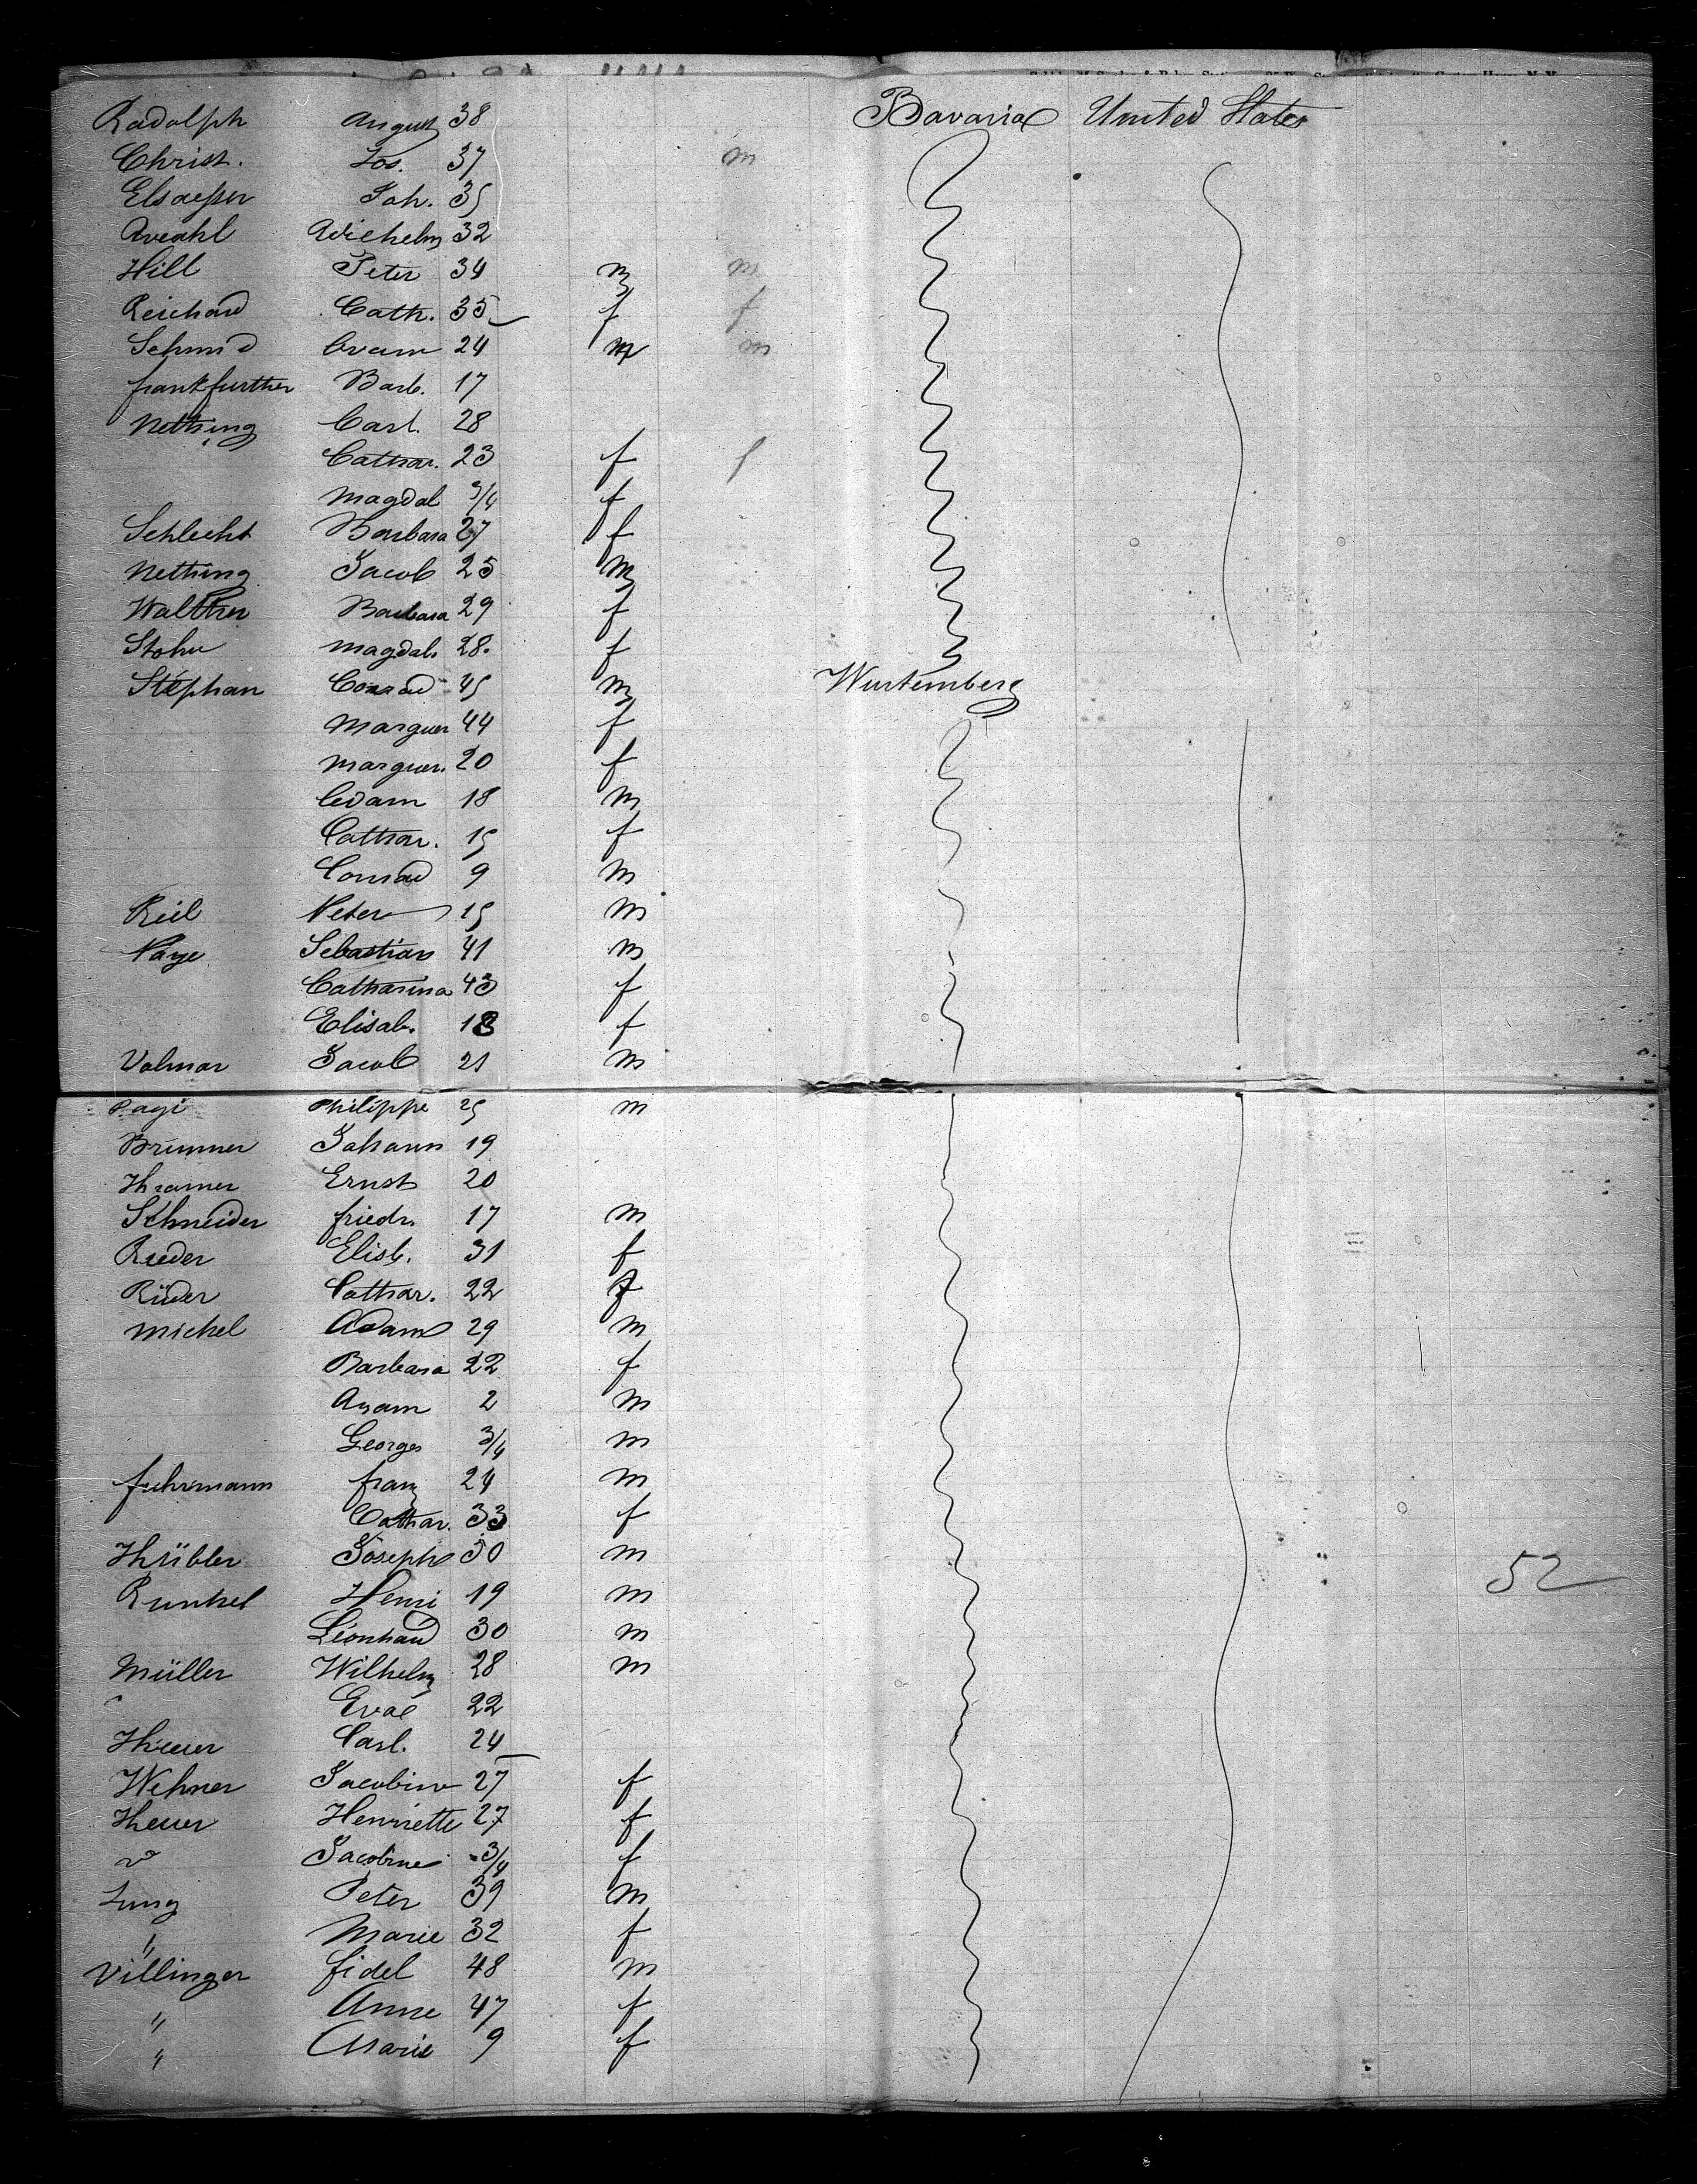 Radolph August 38 Bavaria United States
Christ. Jos. 37 m
Elsaesser Joh. 35
Wilhelm 32
Hill Peter 34 m m
Reichard Cath. 35 f f
Schmid Adam 24 m m
frankfurther Barb. 17
Nething Carl. 28
Cathar. 23 f f
Magdal 3/4 f
Schlecht Barbara 27 f
Nething Jacob 25 m
Walther Barbara 29 f
Stohr Magdal. 28. f
Stephan Conrad 45 m Wurtemberg
Marguer 44 f
Marguer. 20 f
Adam 18 m
Cathar. 15 f
Conrad 9 m
Reil Peter 15 m
Page Sebastian 41 m
Catharina 43 f
Elisab. 18 f
Volmar Jacob 21 m
Pagi Philippe 25 m
Brunner Johann 19
Kramer Ernst 20
Schneider friedr. 17 m
Rieder Elisb. 31 f
Rider Cathar. 22 f
Michel Adam 29 m
Barbara 22 f
Adam 2 m
Georges 3/4 m
fuhrmann franz 24 m
Cathar. 33 f
Hübler Joseph 50 m 52
Runkel Henri 19 m
Léonhard 30 m
Müller Wilhelm 28 m
" Evae 22
Heuer Carl. 24
Wehner Jacobine 27 f
Heuer Henriette 27 f
Jacobine 3/4 f
Jung Peter 39 m
" Marie 32 f
Villinger fidel 48 m
" Anne 47 f
" Marie 9 f